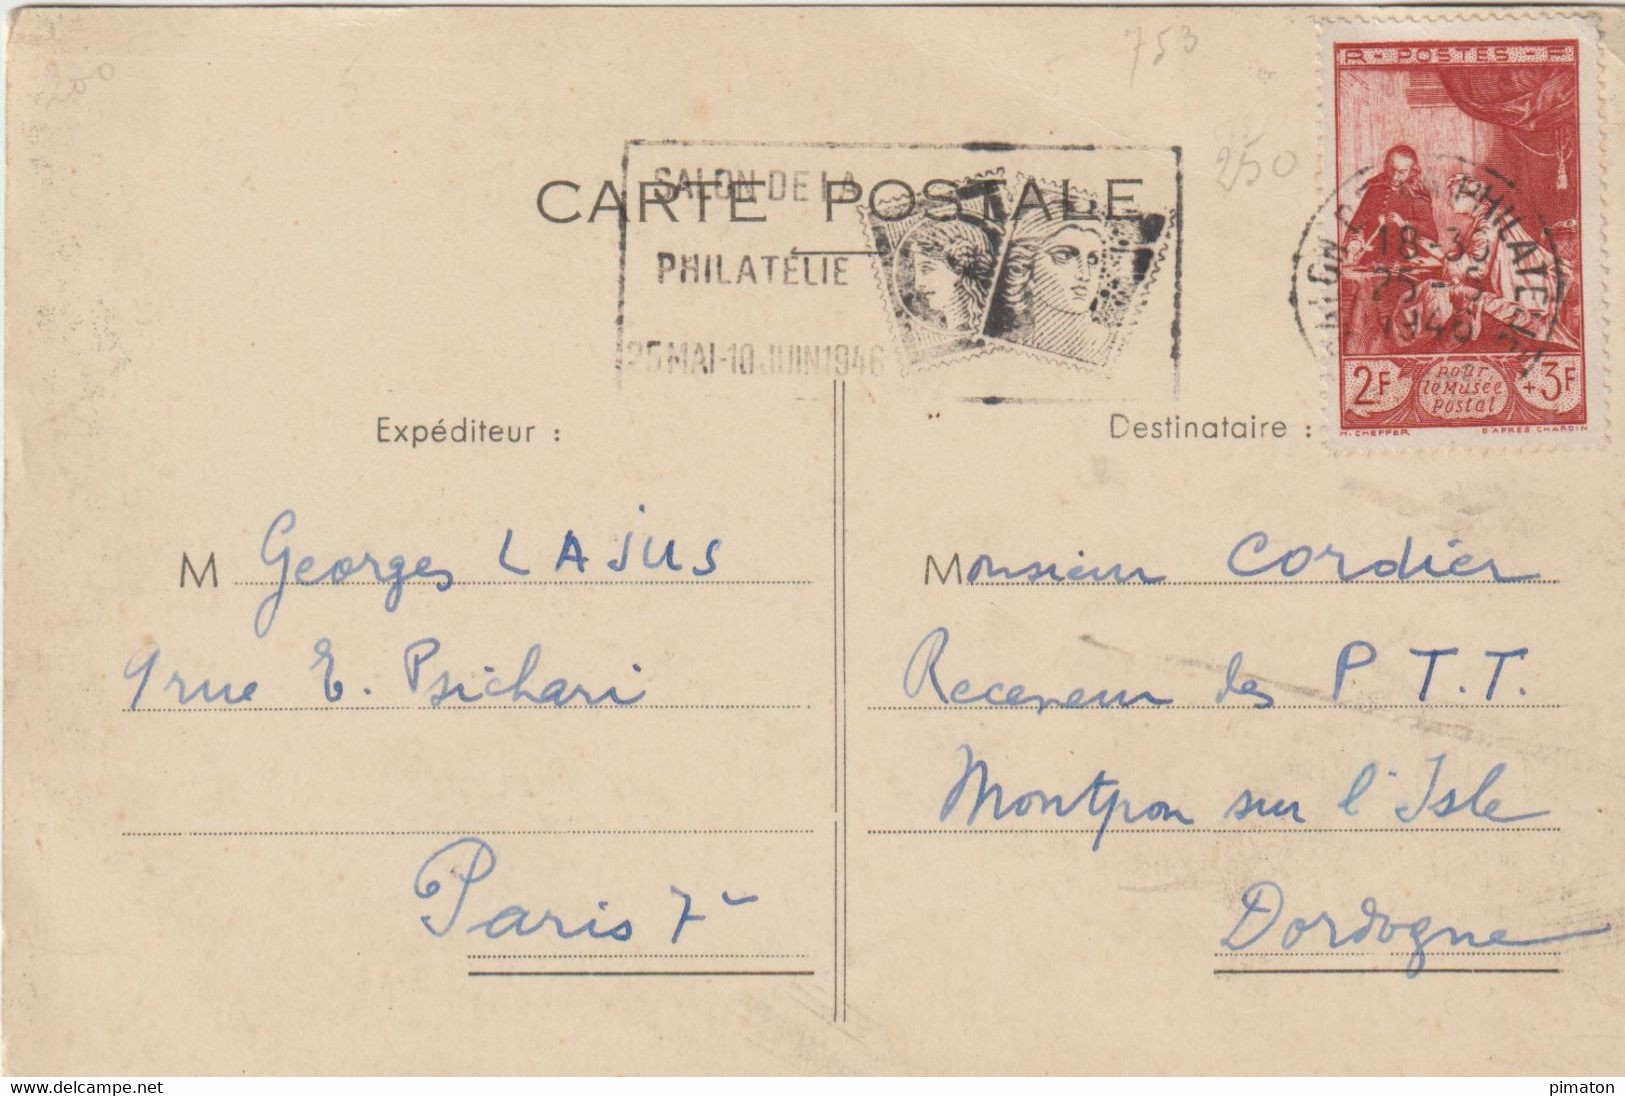 753
200
5
250
RF POSTES RF
CARTE POSTALE
SALON DE LA
PHILATÉLIE
25 MAI-10 JUIN 1946
LA PHILATELIE
18-30
25-5
1946
2F
pour
le Musée
postal
+3F
H. CHEFFER
D'APRES CHARDIN
Expéditeur :
Destinataire :
M Georges LAJUS
9 rue E. Psichari
Paris 7e
Monsieur Cordier
Receveur des P T.T.
Montpon sur l'Isle
Dordogne
www.delcampe.net
pimaton